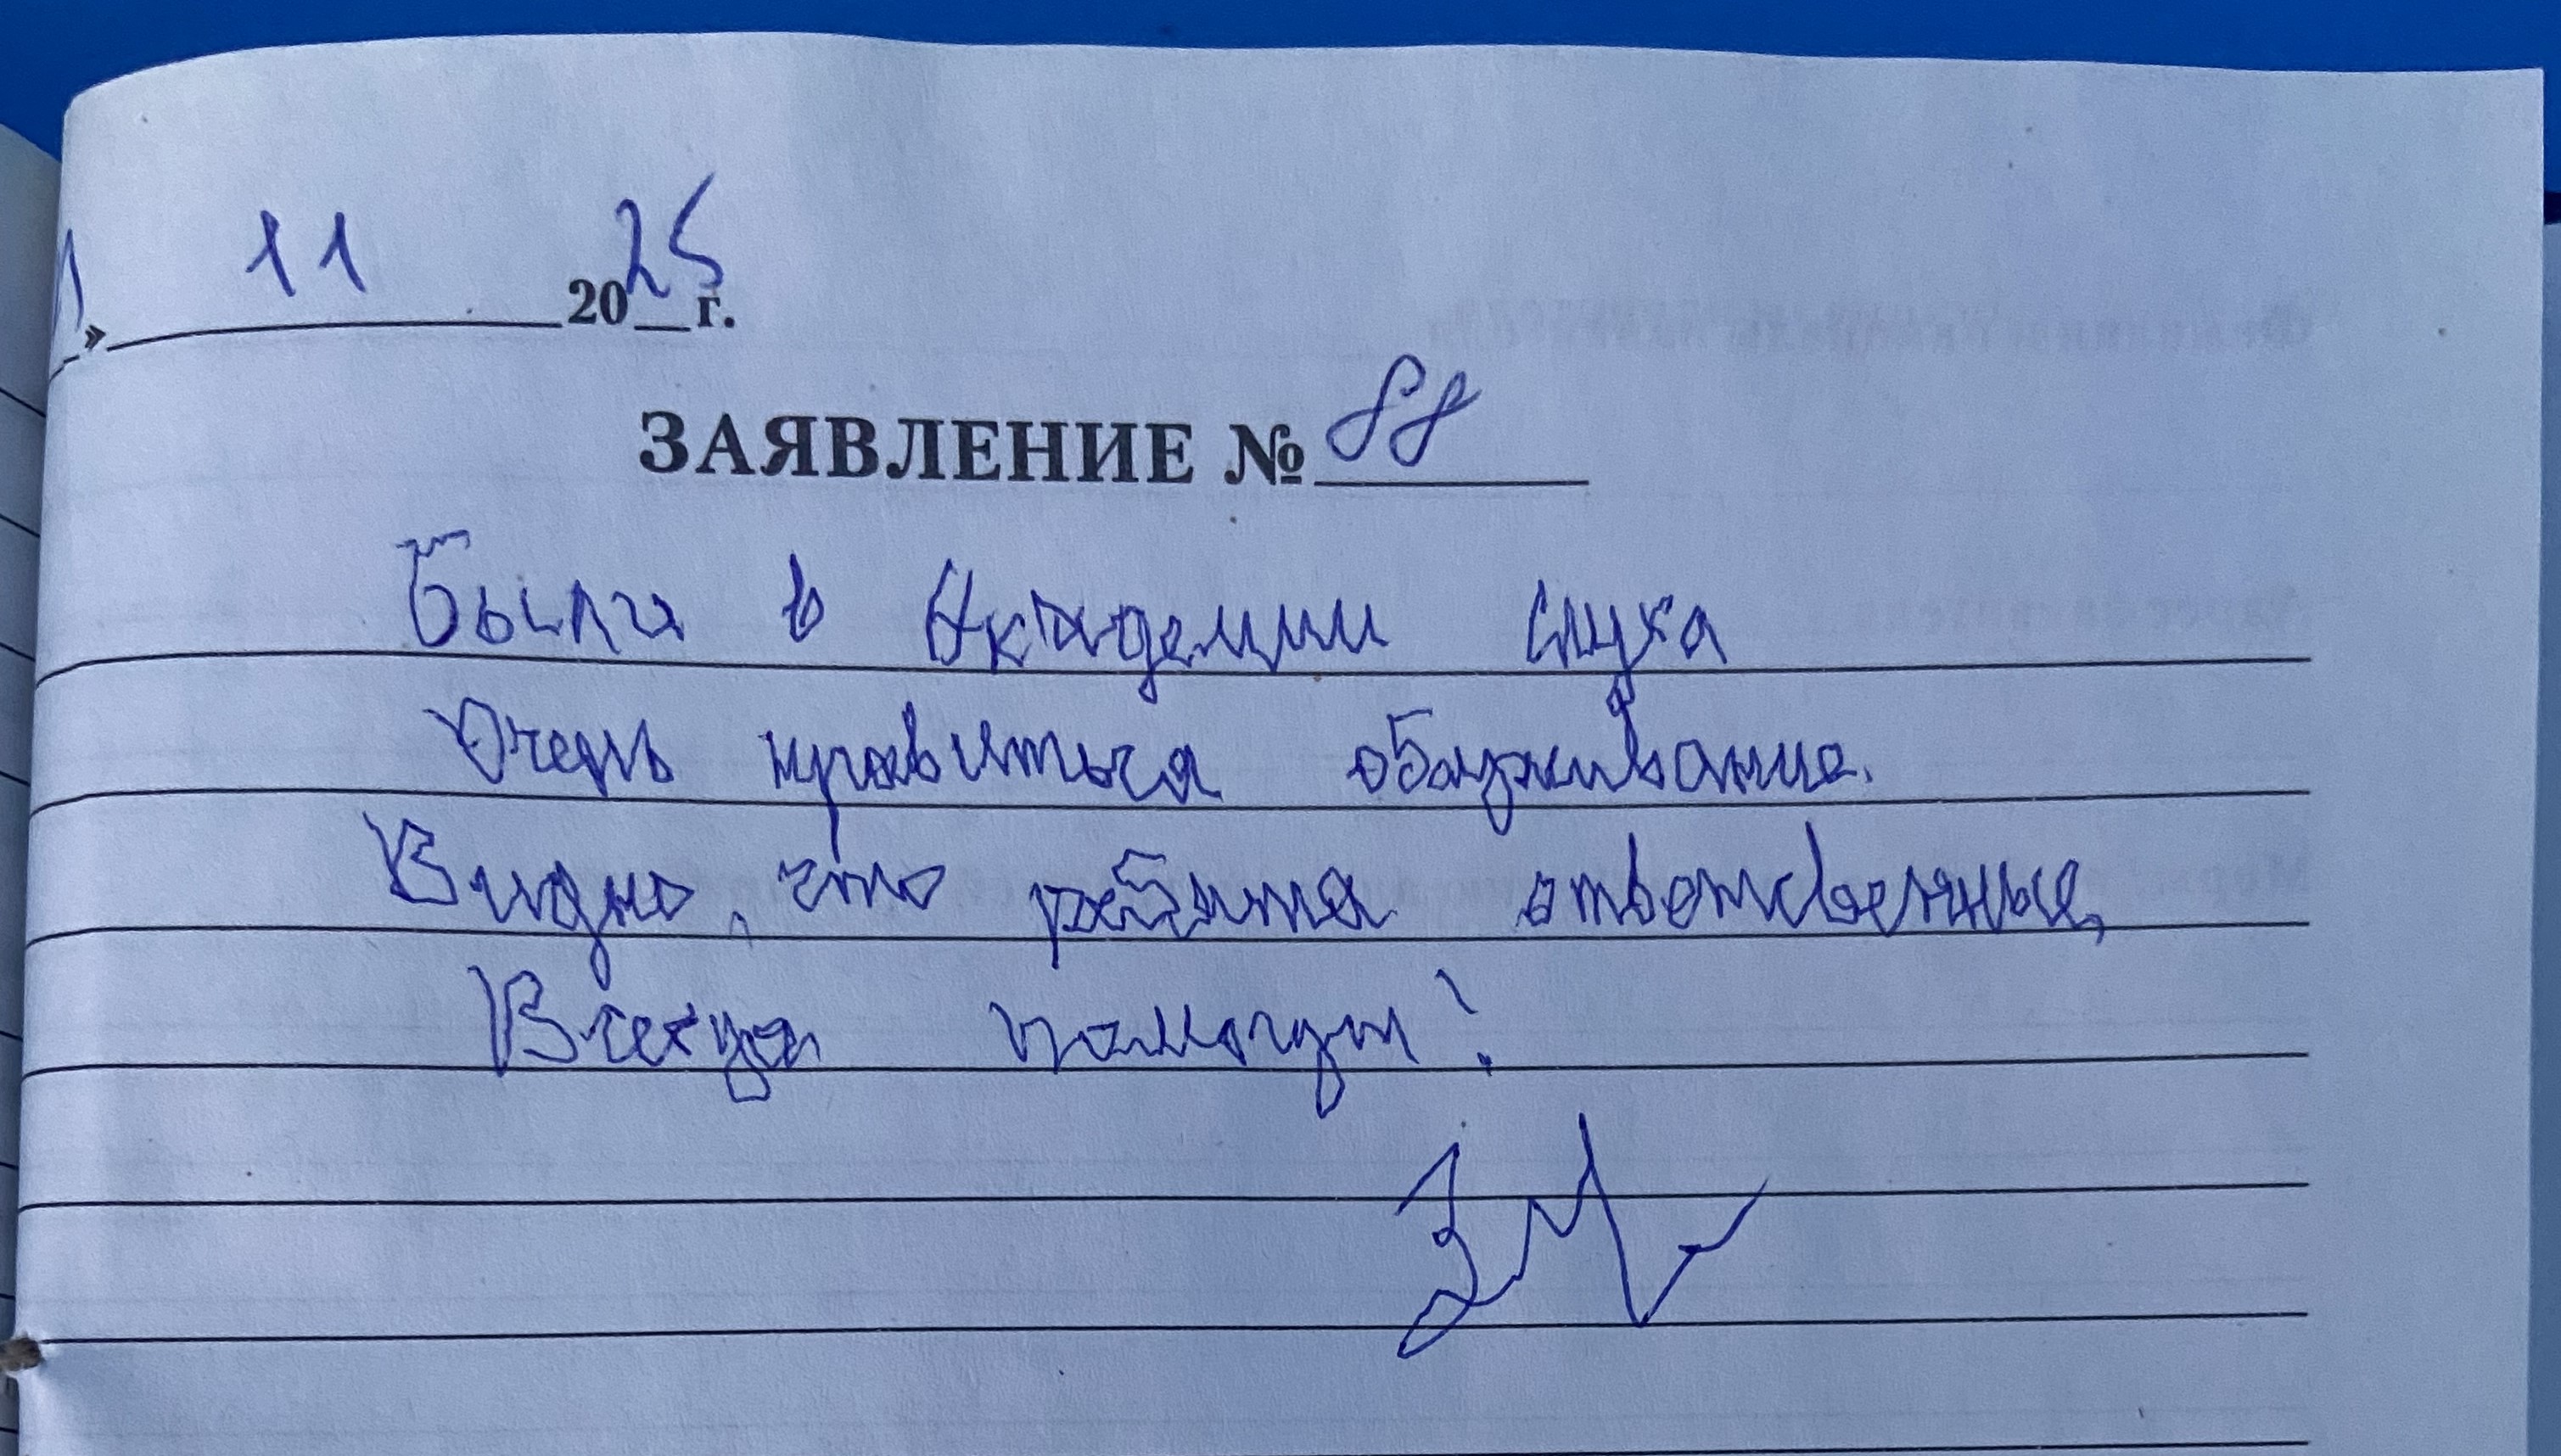 » 11 2025 г.
ЗАЯВЛЕНИЕ № 88
Были в Академии слуха
Очень нравиться обслуживание.
Видно, что ребята ответственные,
Всегда помогут!